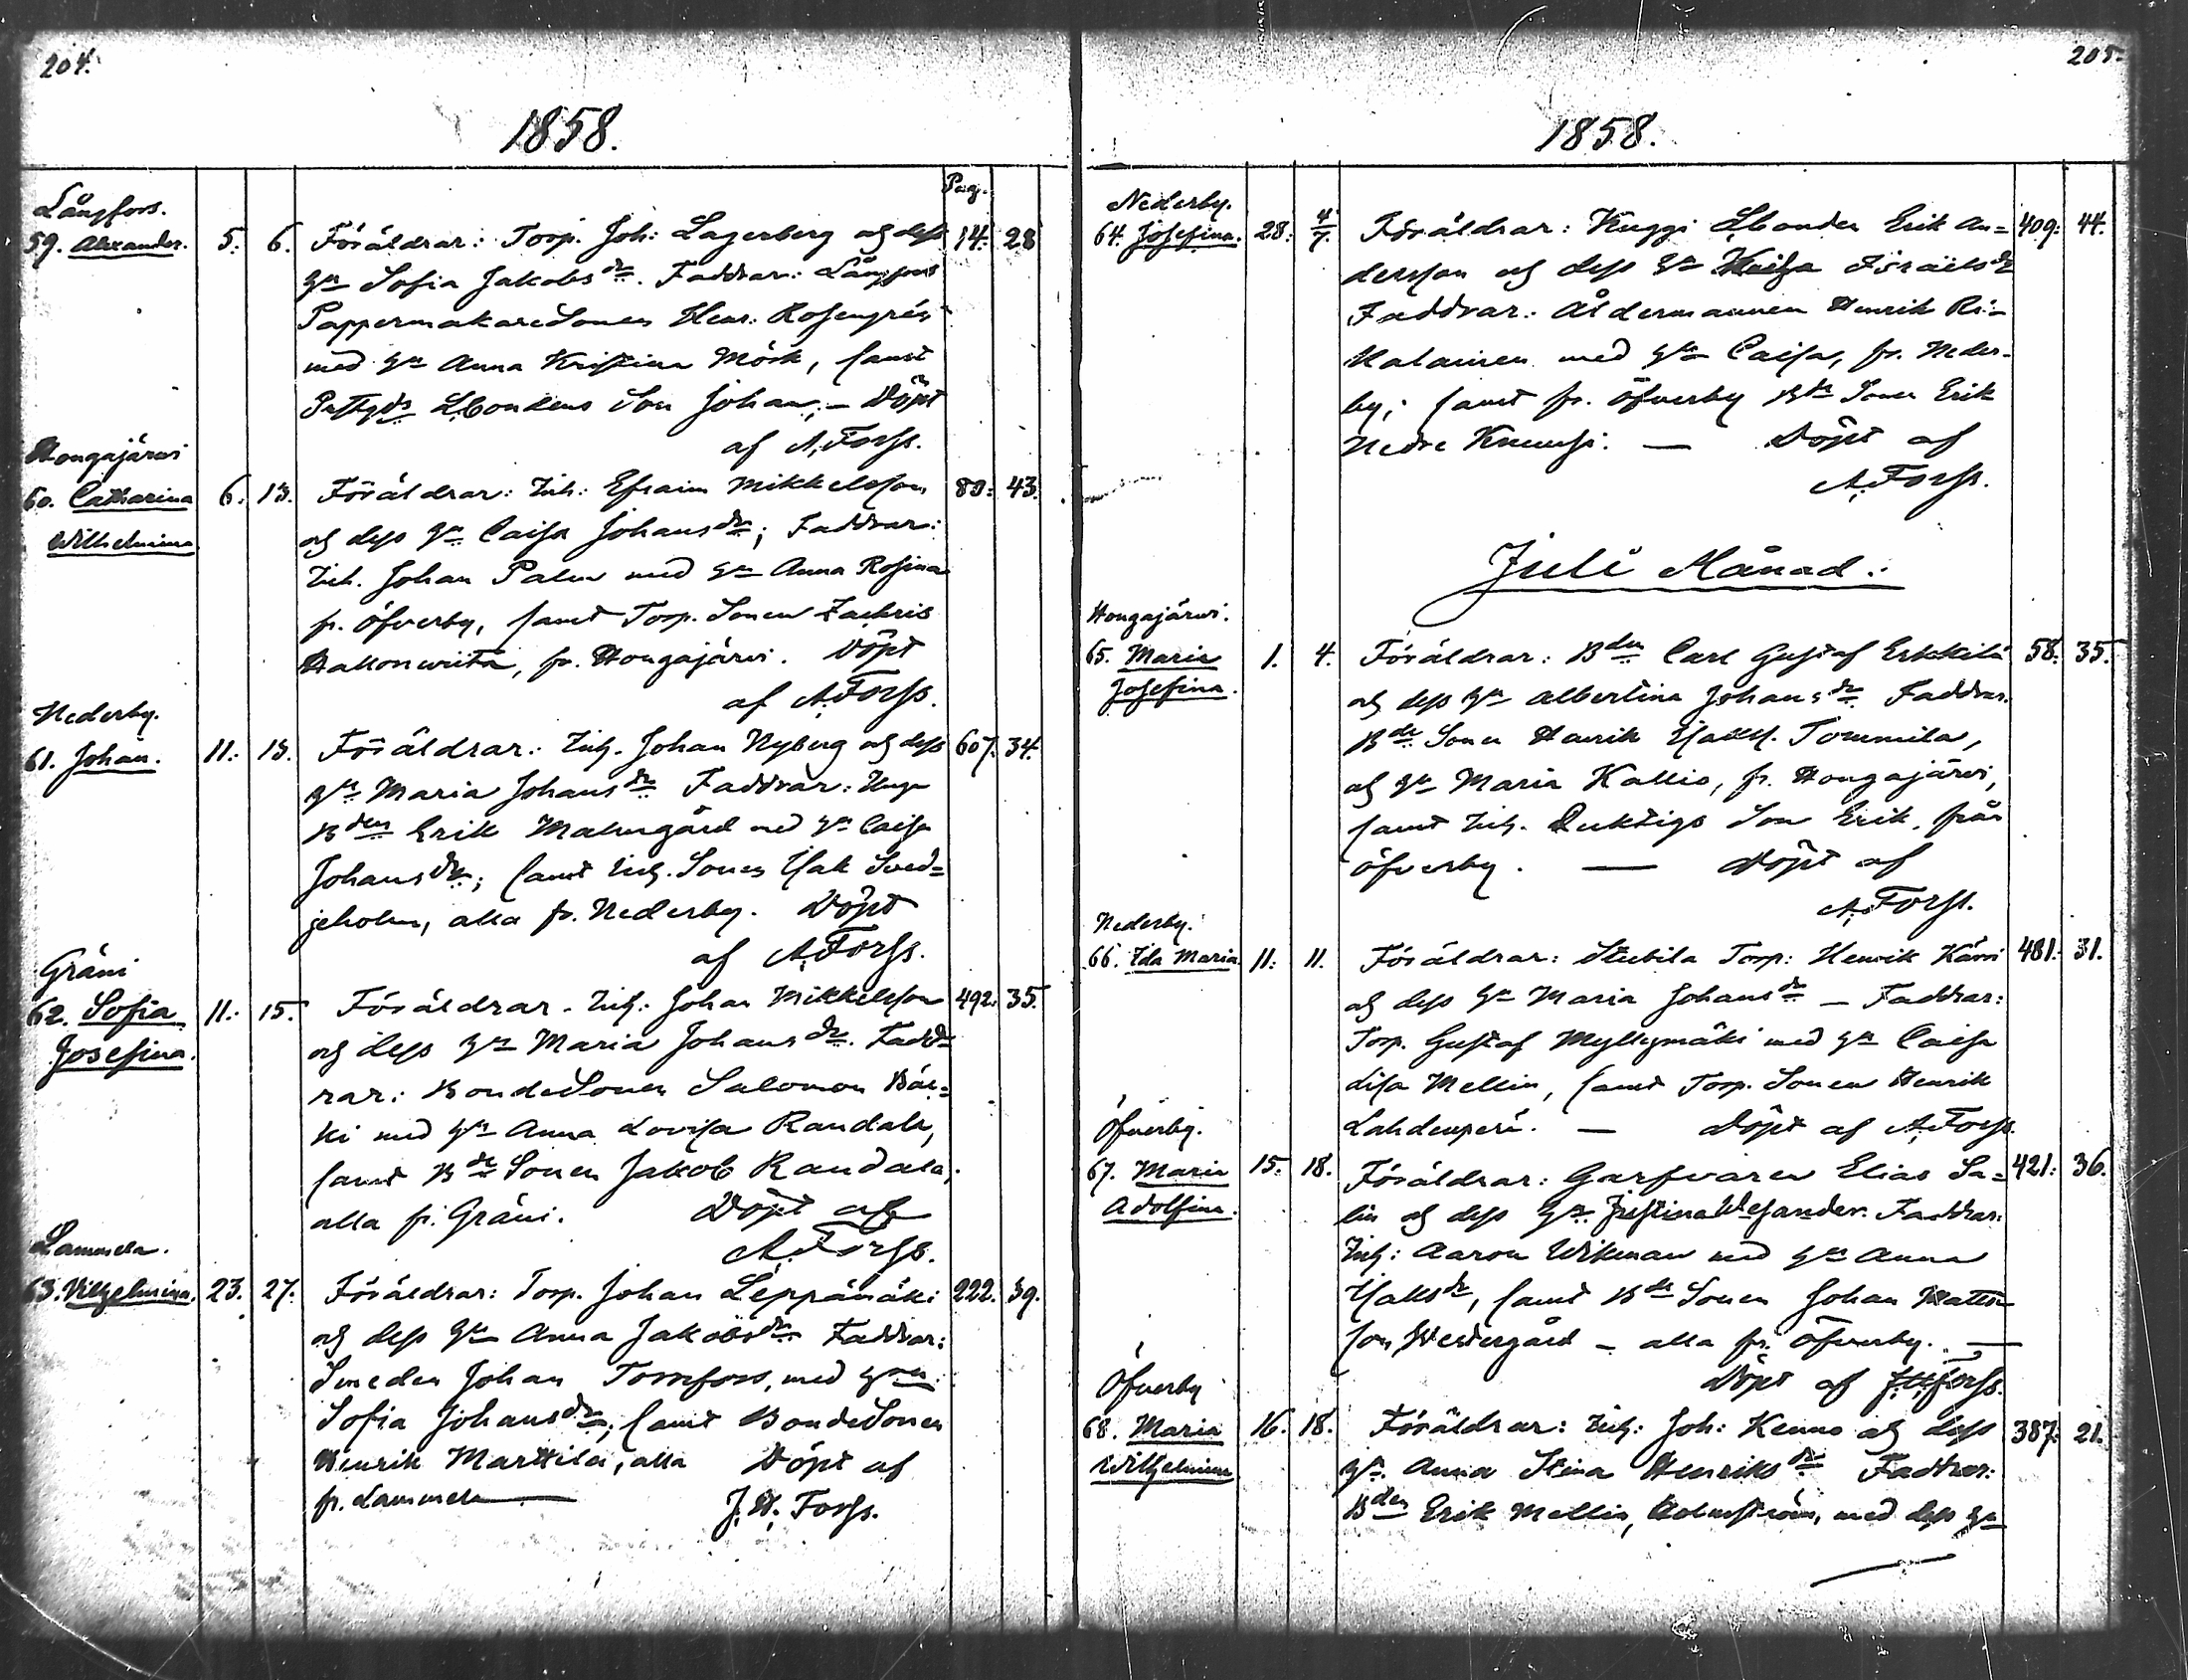 204.
1858.
Pag.
Långfors.
59. Alexander. 5. 6. Föräldrar: Torp. Joh: Lagerberg och dess 14. 28
hu Sofia Jakobsdr. Faddrar: Långfors
PappermakareSonen Henr: Rosengrén
med hu Anna Kristina Mörk, samt
LBondens Son Johan, – Döpt
af A. Forss.
Hongajärwi
60. Catharina 6. 13. Föräldrar: Inh: Efraim Mikkelsson 80. 43.
Wilhelmina
och dess hu Caisa Johansdr; Faddrar:
Inh. Johan Palm med hu Anna Rosina
fr. Öfverby, samt Torp. Sonen Zachris
Hakonwirta, fr. Hongajärwi. Döpt
af A. Forss.
Nederby.
61. Johan. 11. 13. Föräldrar: Inh. Johan Nyberg och dess 607. 34.
hu Maria Johansdr Faddrar:
Bden Erik Malmgård med hu Caisa
Johansdr; samt Inh. Sonen Isak Sved=
jeholm, alla fr. Nederby. Döpt
af A. Forss.
Gräni
62. Sofia 11. 15. Föräldrar. Inh: Johan Mikkelsson 492. 35.
Josefina.
och dess hu Maria Johansdr. Fadd=
rar: BondeSonen Salomon Bär=
ki med hu Anna Lovisa Randala,
samt Bde Sonen Jakob Randala,
alla fr. Gräni. Döpt af
A. Forss.
Lammela.
63. Vilhelmina. 23. 27. Föräldrar: Torp. Johan Leppämäki 222. 39.
och dess hu Anna Jakobsdr Faddrar:
Smeden Johan Tornfors, med hun
Sofia Johansdr; samt BondeSonen
Henrik Marttila, alla Döpt af
fr. Lammela J. H. Forss.
205.
1858.
Nederby.
64. Josefina. 28. 4/7. Föräldrar: Knuggi LBonden Erik An= 409. 44.
dersson och dess hu Kaisa Israelsdr
Faddrar: Åldermannen Henrik Ri=
kalainen med hu Caisa, fr. Neder-
by; samt fr. Öfverby Bde Sonen Erik
Nedre Knuussi. — Döpt af
A. Forss.
Juli Månad.
Hongajärwi.
65. Maria 1. 4. Föräldrar: Bden Carl Gustaf Erkkilä 58. 35.
Josefina.
och dess hu Albertina Johansdr Faddrar.
Bde Sonen Henrik Isakss. Tommila,
och hu Maria Kallio, fr. Hongajärwi,
samt Inh. Duktigs Son Erik, från
Öfverby. — Döpt af
A. Forss.
Nederby.
66. Ida Maria. 11. 11. Föräldrar: Stubila Torp: Henrik Kärri 481. 31.
och dess hu Maria Johansdr – Faddrar:
Torp. Gustaf Myllymäki med hu Caisa
Lisa Mellin, samt Torp. Sonen Henrik
Lahdenperä. — Döpt af A. Forss.
Öfverby.
67. Maria 15. 18. Föräldrar: Garfvaren Elias Sa= 421. 36.
Adolfina.
lin och dess hu Kristina Wesander. Faddrar:
Inh: Aaron Wikman med hu Anna
Isaksdr, samt Bde Sonen Johan Matts=
son Westergård – alla fr. Öfverby. —
Döpt af J. H. Forss.
Öfverby
68. Maria 16. 18. Föräldrar: Inh: Joh: Kenno och dess 387. 21.
Wilhelmina
hu. Anna Stina Henriksdr Faddrar:
Bden Erik Mellin, Holmström, med dess hu